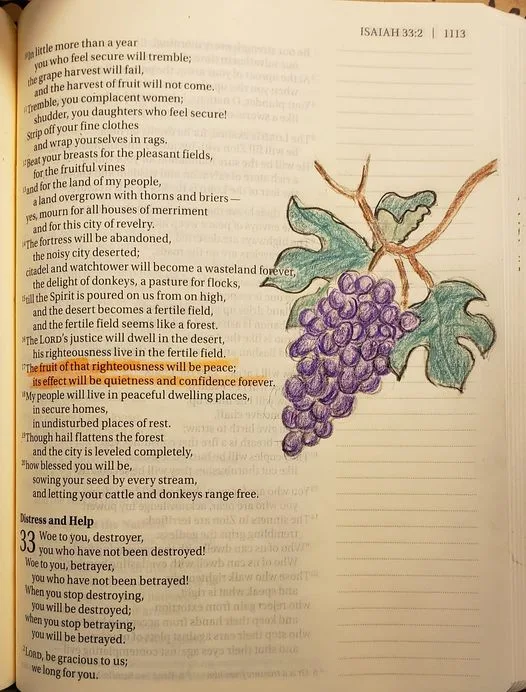 ISAIAH 33:2 | 1113
10In little more than a year
you who feel secure will tremble;
the grape harvest will fail,
and the harvest of fruit will not come.
11Tremble, you complacent women;
shudder, you daughters who feel secure!
Strip off your fine clothes
and wrap yourselves in rags.
12Beat your breasts for the pleasant fields,
for the fruitful vines
13and for the land of my people,
a land overgrown with thorns and briers—
yes, mourn for all houses of merriment
and for this city of revelry.
14The fortress will be abandoned,
the noisy city deserted;
citadel and watchtower will become a wasteland forever,
the delight of donkeys, a pasture for flocks,
15till the Spirit is poured on us from on high,
and the desert becomes a fertile field,
and the fertile field seems like a forest.
16The LORD's justice will dwell in the desert,
his righteousness live in the fertile field.
17The fruit of that righteousness will be peace;
its effect will be quietness and confidence forever.
18My people will live in peaceful dwelling places,
in secure homes,
in undisturbed places of rest.
19Though hail flattens the forest
and the city is leveled completely,
20how blessed you will be,
sowing your seed by every stream,
and letting your cattle and donkeys range free.
Distress and Help
33 Woe to you, destroyer,
you who have not been destroyed!
Woe to you, betrayer,
you who have not been betrayed!
When you stop destroying,
you will be destroyed;
when you stop betraying,
you will be betrayed.
2LORD, be gracious to us;
we long for you.